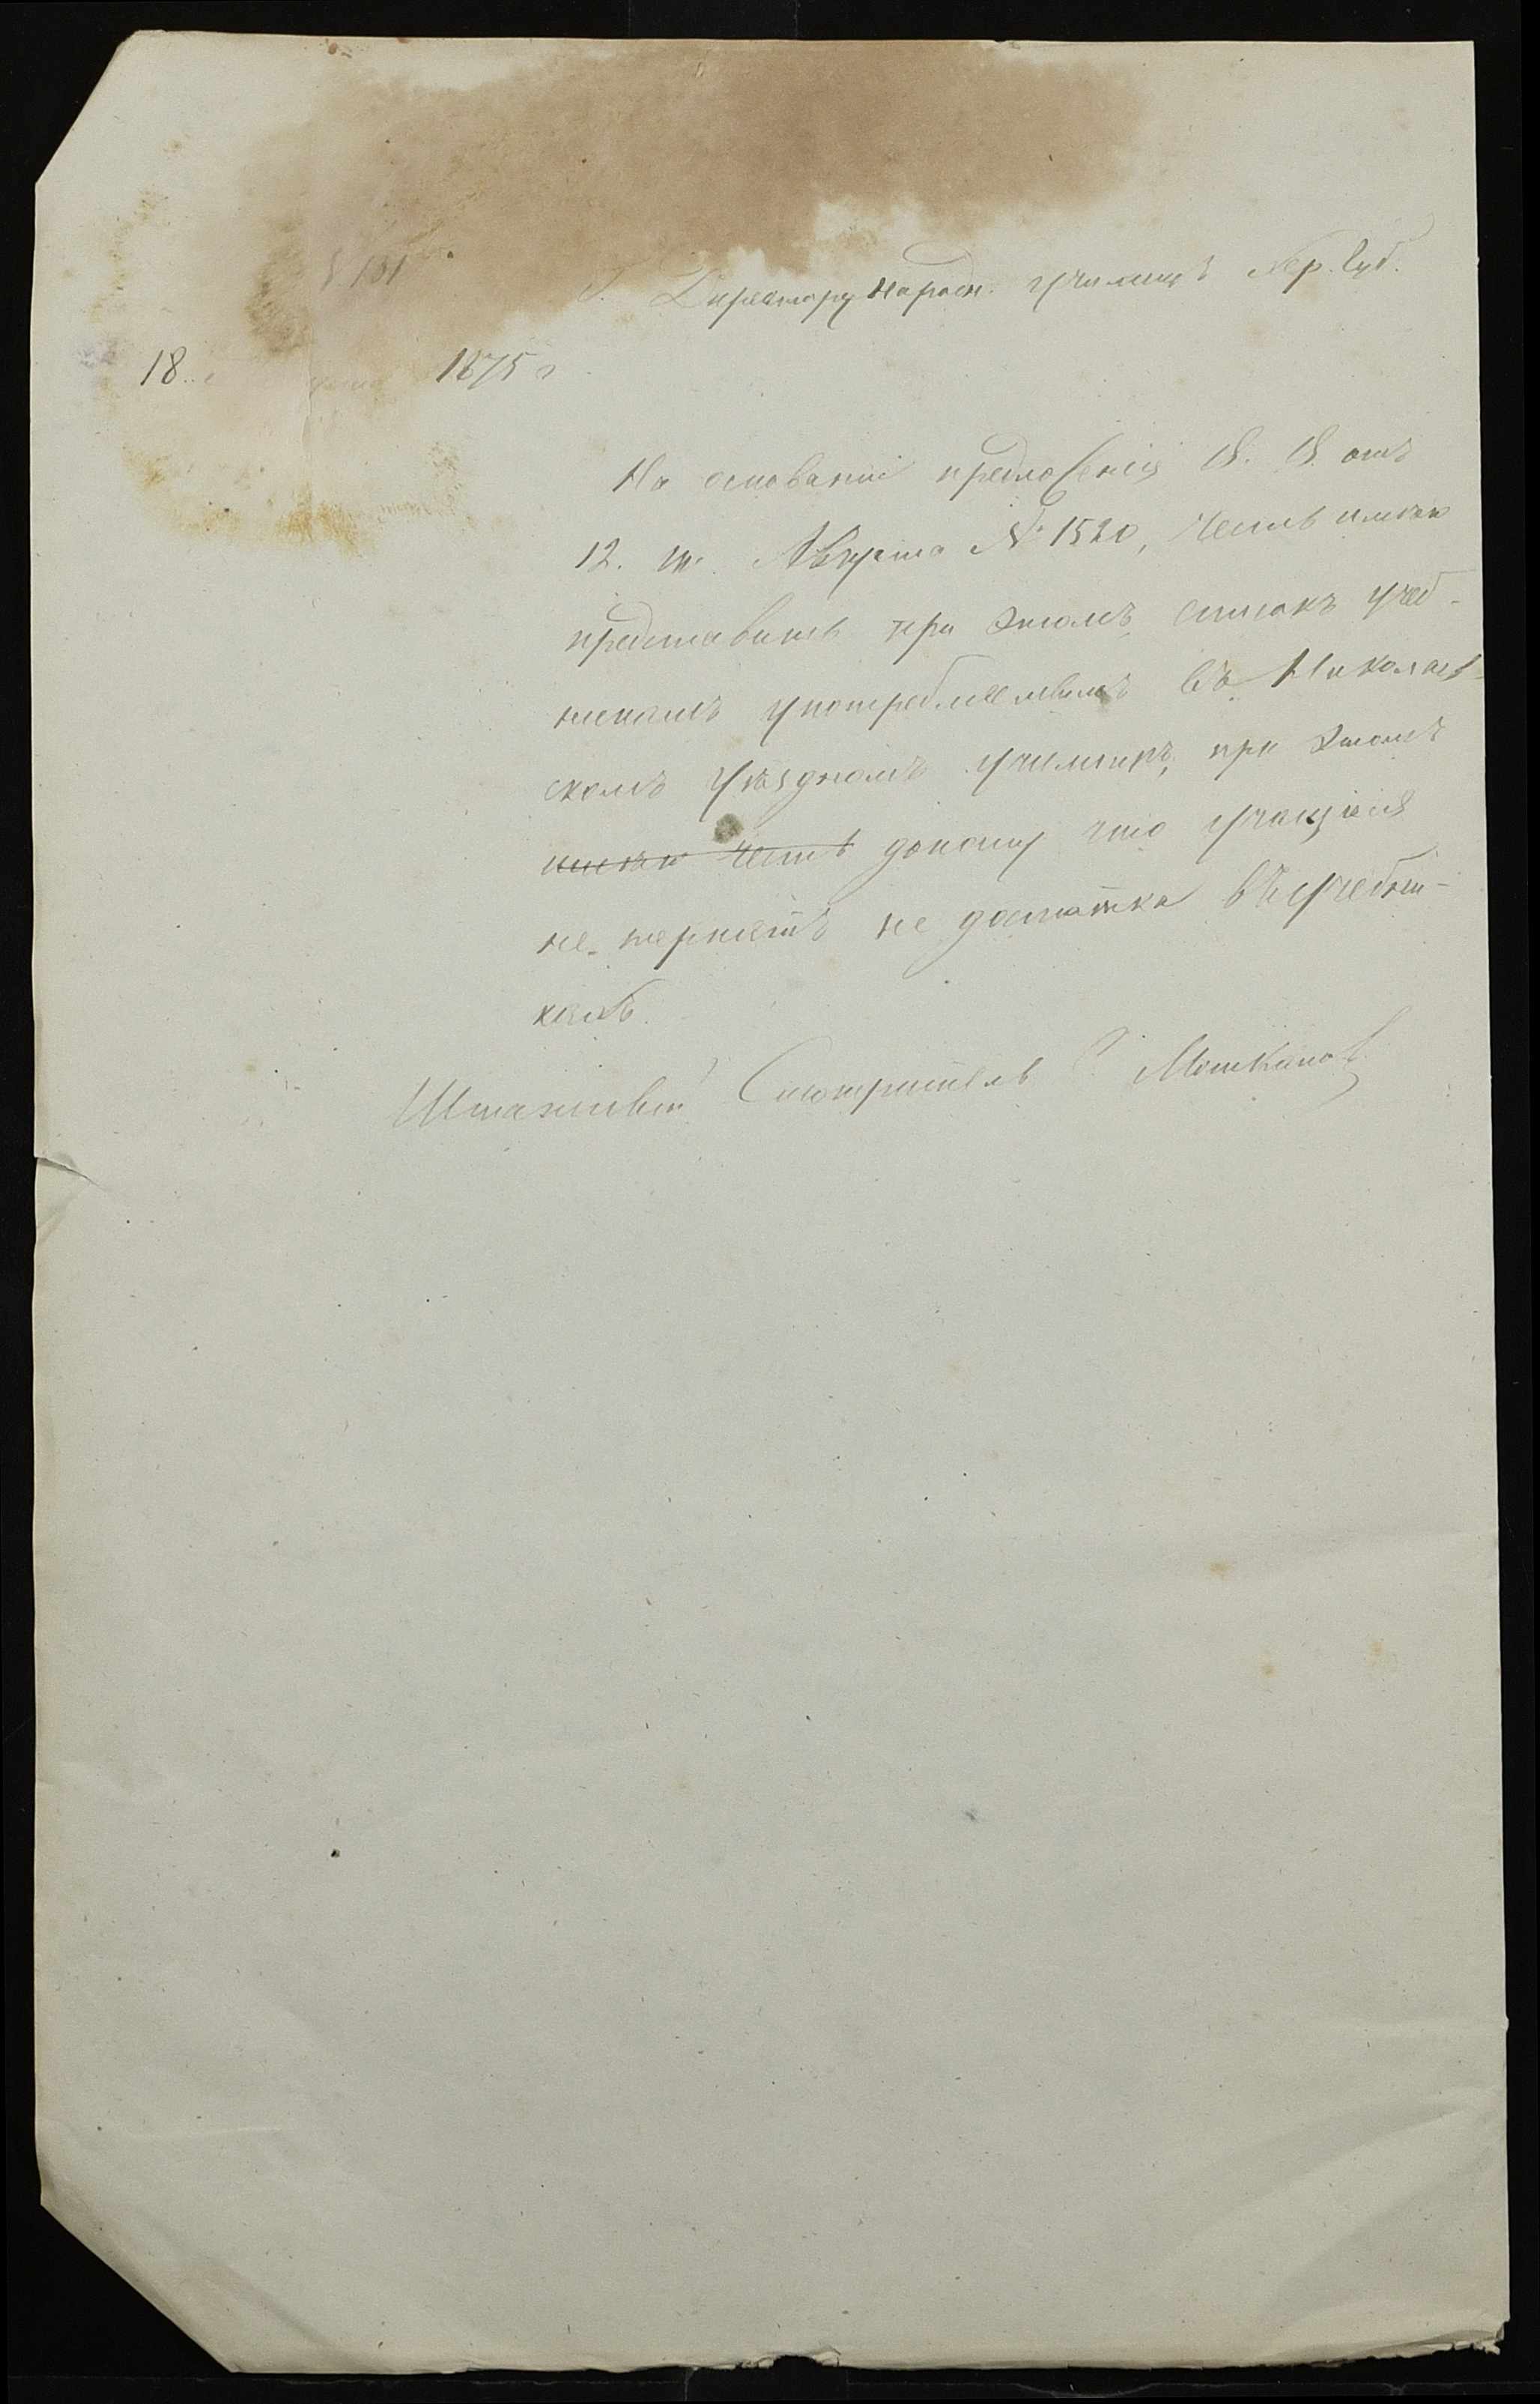 № 131
Г. Директору Народн. училищъ Хер. Губ.
18 1875 г
На основаніи предложенія В. В. отъ
12. Августа № 1520, честь имѣю
представить при этомъ списокъ учеб-
никамъ употребляемымъ въ Николаев-
скомъ Уѣздномъ училищѣ, при этомъ
имѣю честь доношу что учащіеся
не терпятъ не достатка въ учебни-
кахъ.
Штатный Смотритель Мошкановъ